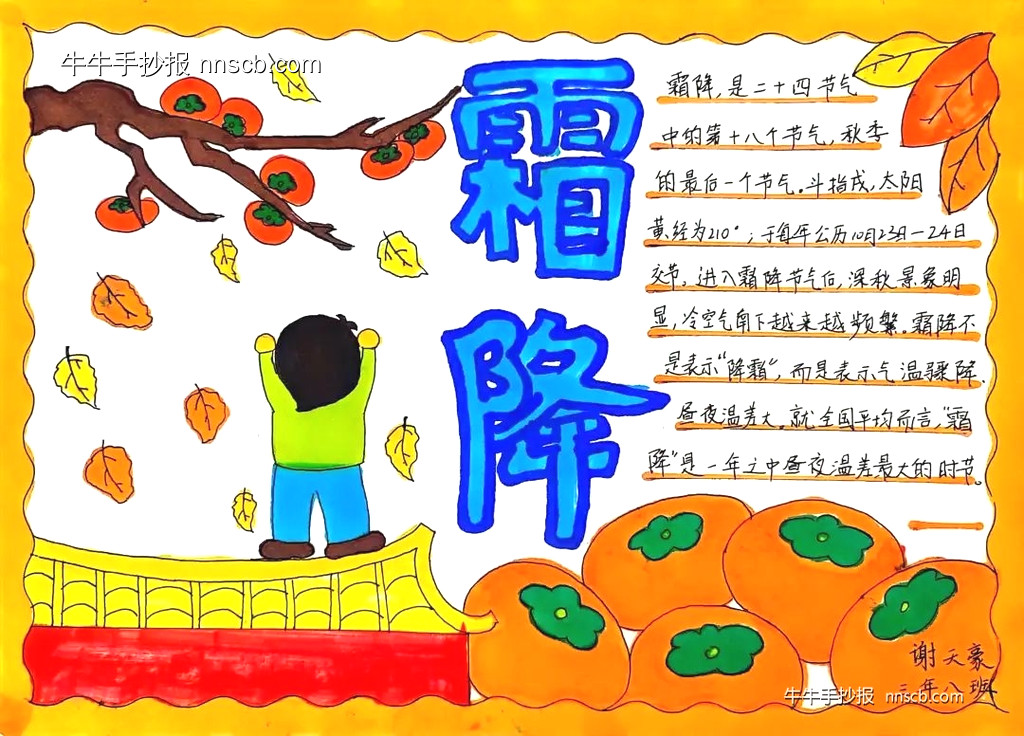 牛牛手抄报 nnscb.com
霜降
霜降,是二十四节气
中的第十八个节气,秋季
的最后一个节气。斗指戌,太阳
黄经为210°;于每年公历10月23日一24日
交节。进入霜降节气后,深秋景象明
显,冷空气南下越来越频繁。霜降不
是表示“降霜”,而是表示气温骤降、
昼夜温差大。就全国平均而言,“霜
降”是一年之中昼夜温差最大的时节。
谢天豪
二年八班
牛牛手抄报 nnscb.com